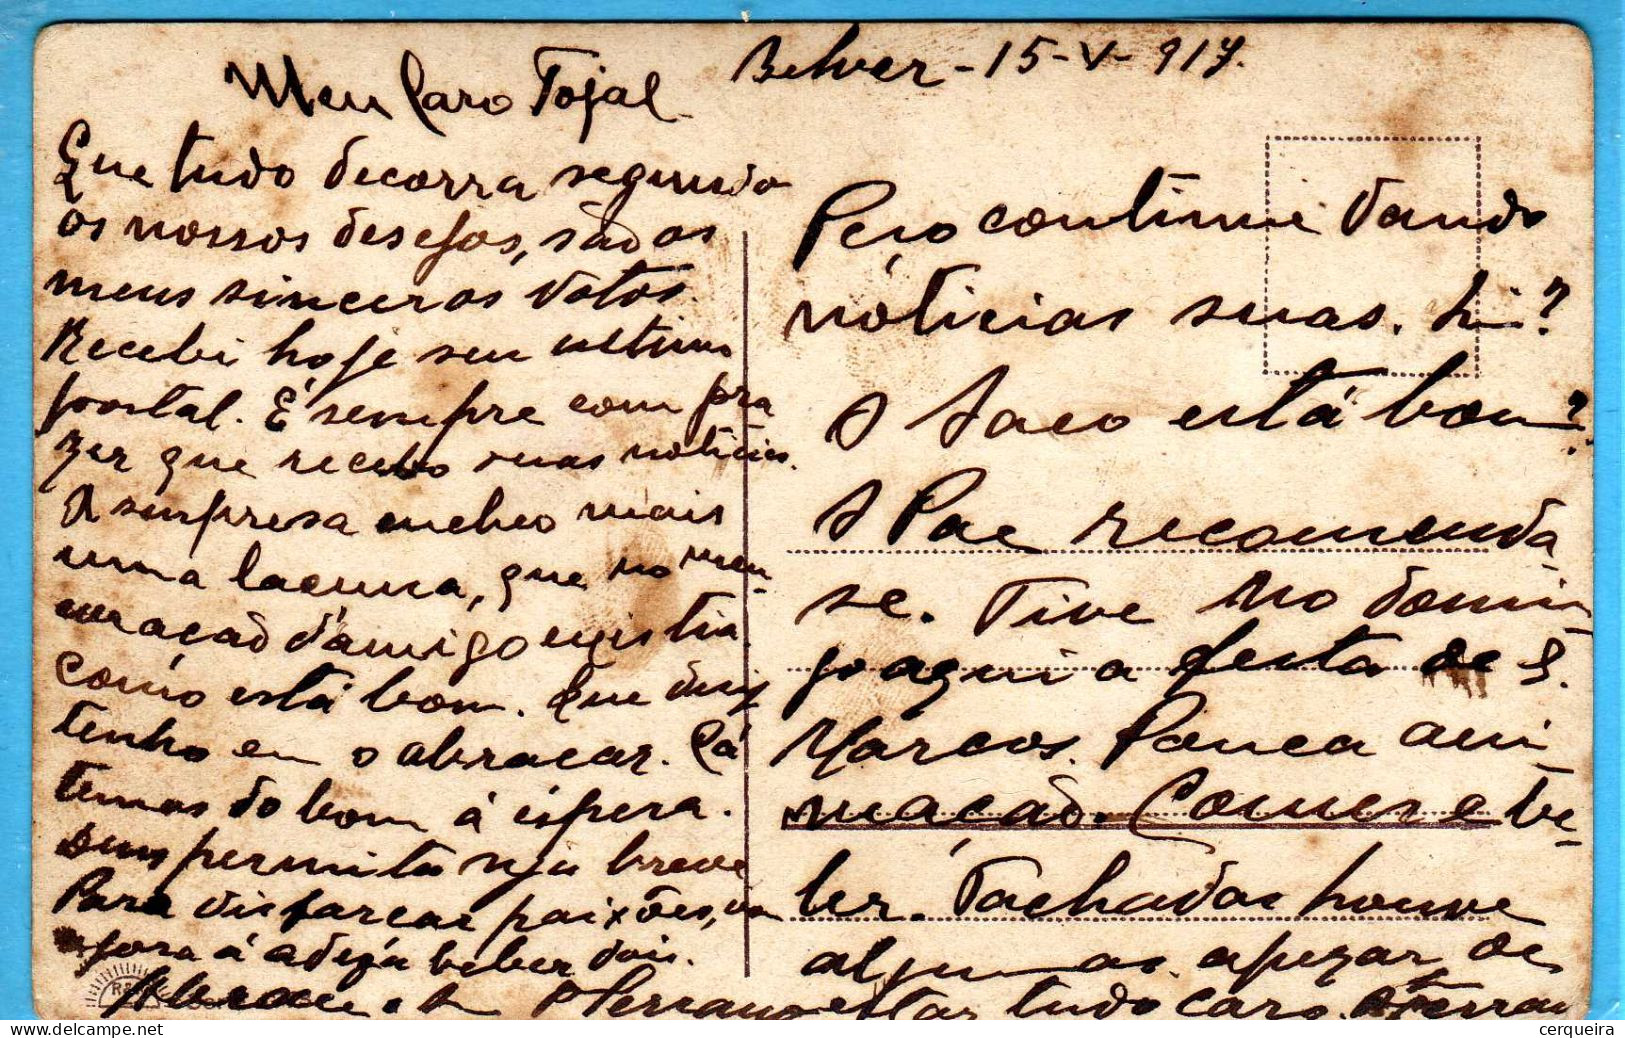 Belver - 15-V-917.
Meu Caro Tojal
Que tudo decorra segundo
os nossos desejos, são os
meus sinceros votos.
Recebi hoje seu ultimo
postal. É sempre com pra
zer que recebo suas noticias.
A surpresa encheu mais
uma lacuna, que no meu
coração d'amigo existia.
Como está bom. Que
tenho em o abraçar. Cá
temos do bom á espera.
Deus permita seja breve
Para disfarçar paixões, vou
agora á adega beber dois.
Peço continue dando
nóticias suas. Sim?
O Saco está bom?
O Pae recomenda
se. Tive no domin
go aqui a festa de S.
Marcos. Pouca ani
mação. Comer e be-
ber. Tachadas houve
algumas apezar de
estar tudo caro.
cerqueira